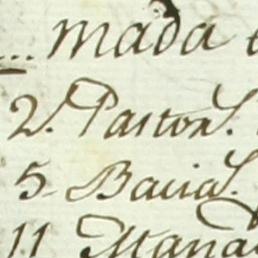 ... mada
2. Pastor.
5. Bacia.
11 Mana